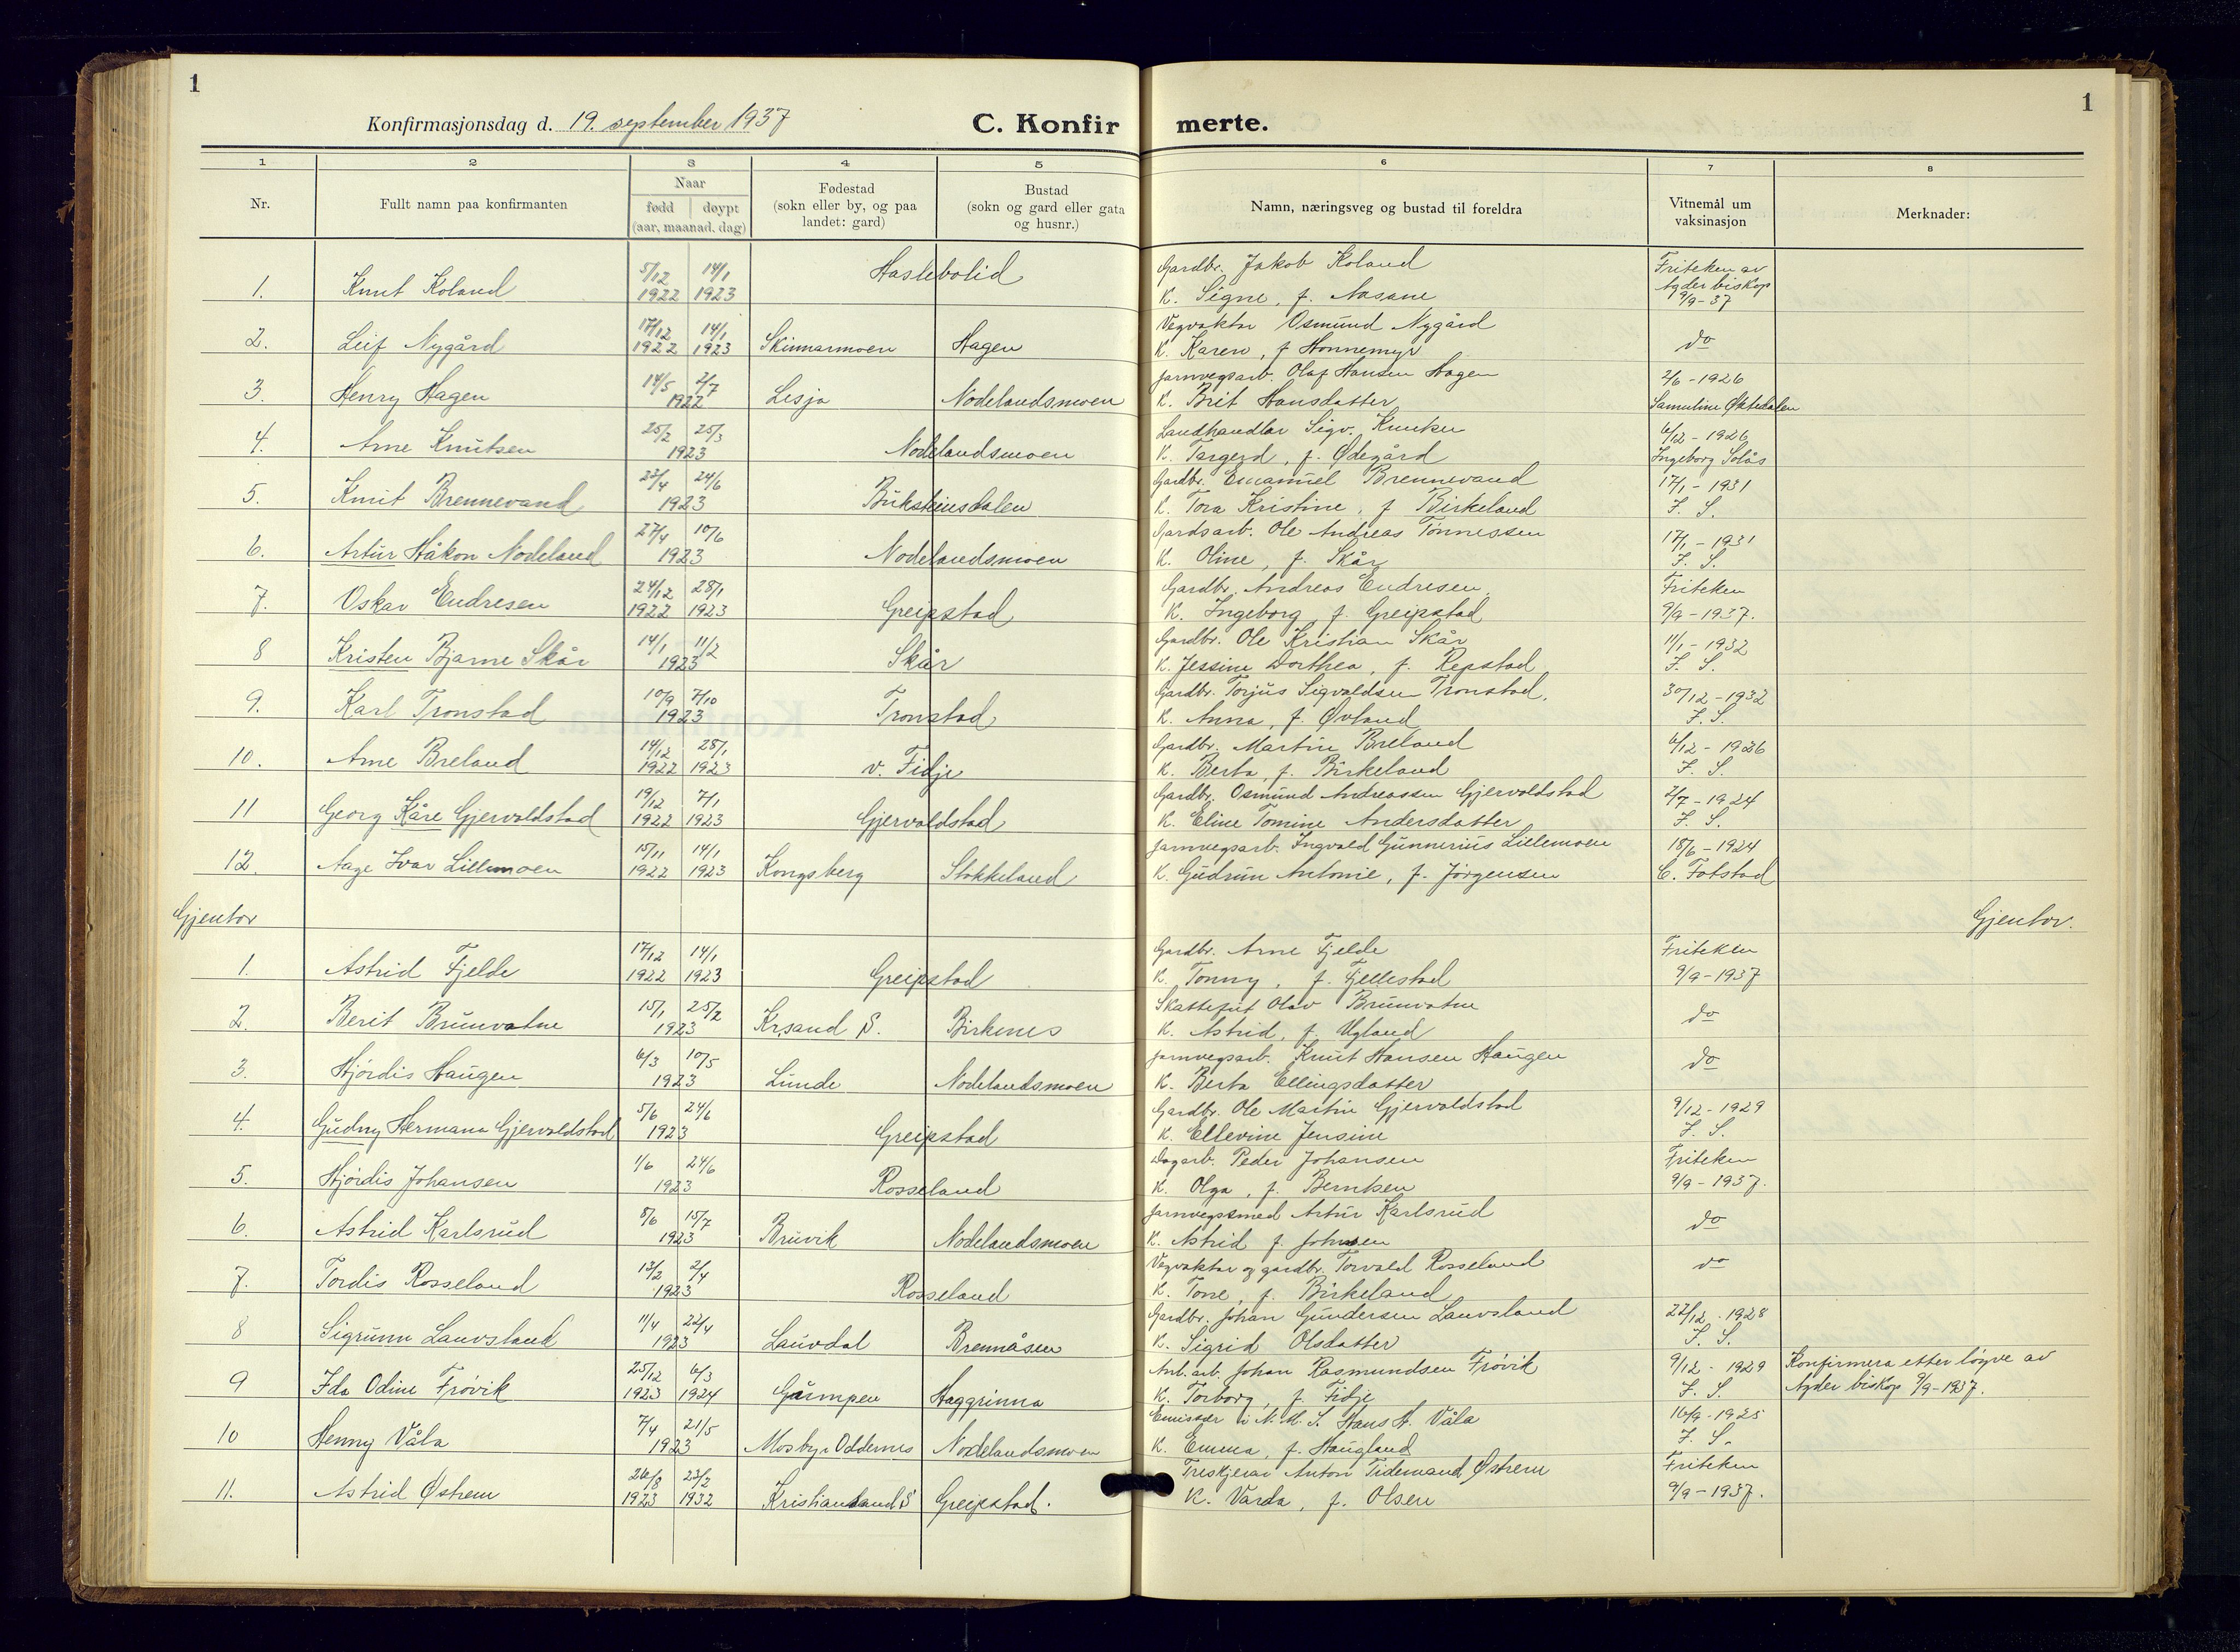 1
1
Konfirmasjonsdag d. 19. september 1937
C. Konfir merte.
1 2 3 4 5 6 7 8
Nr.
Fullt namn paa konfirmanten
Naar
fødd døypt
(aar, maanad, dag)
Fødestad
(sokn eller by, og paa
landet: gard)
Bustad
(sokn og gard eller gata
og husnr.)
Namn, næringsveg og bustad til foreldra
Vitnemål um
vaksinasjon
Merknader:
1. Knut Koland 5/12 1922 14/1 1923 Haslebolid Gardbr. Jakob Koland
K. Signe, f. Aasane Friteken av Agder biskop 9/9-37
2. Leif Nygård 17/12 1922 14/1 1923 Skinnarmoen Hagen Vegvaktar Osmund Nygård
K. Karen, f. Honnemyr do
3. Henry Hagen 14/5 2/7 1922 Lesja Nodelandsmoen Jarnvegsarb. Olaf Hansen Hagen
K. Brit Hansdatter 2/6-1926 Samuline Øktedalen
4. Arne Knutsen 25/2 25/3 1923 Nodelandsmoen Landhandlar Sigv. Knutsen
K. Targerd, f. Ødegård 6/12-1926 Ingeborg Solås
5. Knut Brennevand 23/4 24/6 1923 Buksteinsdalen Gardbr. Emanuel Brennevand
K. Tora Kristine, f. Birkeland 17/1-1931 I. S.
6. Artur Håkon Nodeland 27/4 10/6 1923 Nodelandsmoen Gardsarb. Ole Andreas Tønnessen
K. Oline, f. Skår 17/1-1931 I. S.
7. Oskar Endresen 24/12 1922 28/1 1923 Greipstad Gardbr. Andreas Endresen
K. Ingeborg f. Greipstad Friteken 9/9-1937.
8 Kristen Bjarne Skår 14/1 11/2 1923 Skår Gardbr. Ole Kristian Skår
K. Jessine Dorthea, f. Repstad 11/1-1932 I. S.
9. Karl Tronstad 10/9 7/10 1923 Tronstad Gardbr. Torjus Sigvaldsen Tronstad.
K. Anna, f. Øvland 30/12-1932 I. S.
10. Arne Breland 14/12 1922 28/1 1923 v. Fidje Gardbr. Martin Breland
K. Berta, f. Birkeland 6/12-1926 I. S.
11 Georg Kåre Gjervoldstad 19/12 1922 7/1 1923 Gjervoldstad Gardbr. Osmund Andreassen Gjervoldstad
K. Eline Tomine Andersdatter 2/7-1924 I. S.
12. Aage Ivar Lillemoen 15/11 1922 14/1 1923 Kongsberg Stokkeland Jarnvegsarb. Ingvald Gunnerius Lillemoen
K. Gudrun Antonie, f. Jørgensen 18/6-1924 C. Fotstad
Gjentor Gjentor.
1. Astrid Fjelde 17/12 1922 14/1 1923 Greipstad Gardbr. Arne Fjelde
K. Tonny, f. Fjellestad Friteken 9/9-1937
2. Berit Brunvatne 15/1 25/2 1923 Krsand S. Birkenes Skattefut Olav Brunvatne
K. Astrid, f. Ugland do
3. Hjørdis Haugen 6/3 10/5 1923 Lunde Nodelandsmoen Jarnvegsarb. Knut Hansen Haugen
K. Berta Ellingsdatter do
4. Gudny Hermana Gjervoldstad 5/6 24/6 1923 Greipstad Gardbr. Ole Martin Gjervoldstad
K. Ellevine Jensine 9/12-1929 I. S.
5. Hjørdis Johansen 1/6 24/6 1923 Rosseland Dagarb. Peder Johansen
K. Olga, f. Berntsen Friteken 9/9-1937.
6. Astrid Karlsrud 8/6 15/7 1923 Bruvik Nodelandsmoen Jarnvegssmed Artur Karlsrud
K. Astrid f. Johnsen do
7. Tordis Rosseland 13/2 2/4 1923 Rosseland Vegvaktar og gardbr. Torvald Rosseland
K. Tone, f. Birkeland do
8 Sigrunn Lauvsland 11/4 22/4 1923 Lauvdal Brennåsen Gardbr. Johan Gundersen Lauvsland
K. Sigrid Olsdatter 22/12-1928 I. S.
9 Ida Odine Frøvik 25/12 1923 6/3 1924 Gårmpen Haggrinna Anl.arb. Johan Rasmundsen Frøvik
K. Torborg, f. Fidje 9/12-1929 I. S. Konfirmera etter løyve av
Agder biskop 9/9-1937.
10 Henny Våla 7/4 21/5 1923 Mosby i Oddernes Nodelandsmoen Emissær i N.M.S. Hans H. Våla
K. Emma, f. Haugland 16/9-1925 I. S.
11. Astrid Østrem 26/8 1923 23/2 1932 Kristiansand S Greipstad. Treskjerar Anton Tidemand Østrem
K. Varda, f. Olsen Friteken 9/9-1937.